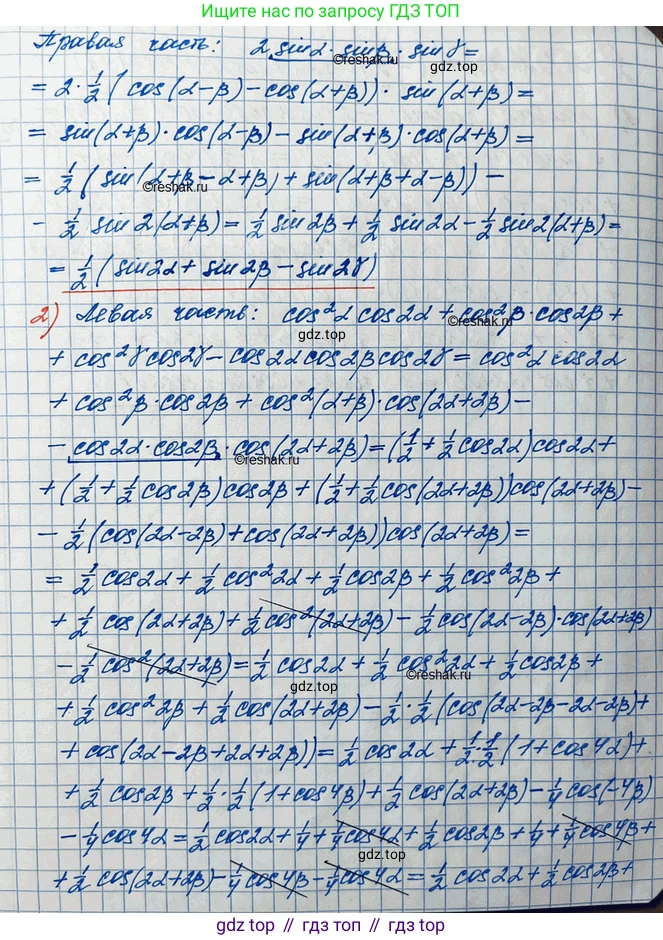 Ищите нас по запросу ГДЗ ТОП
Правая часть: 2 sinα · sinβ · sin γ =
= 2 · 1/2 (cos(α-β) - cos(α+β)) · sin(α+β) =
= sin(α+β) · cos(α-β) - sin(α+β) · cos(α+β) =
= 1/2 (sin(α+β-α+β) + sin(α+β+α-β)) -
©reshak.ru
- 1/2 sin 2(α+β) = 1/2 sin 2β + 1/2 sin 2α - 1/2 sin 2(α+β) =
= 1/2 (sin2α + sin 2β - sin 2γ)
2) Левая часть: cos²α cos2α + cos²β · cos2β +
gdz.top
©reshak.ru
+ cos²γ cos2γ - cos2α cos2β cos2γ = cos²α cos2α
+ cos²β · cos2β + cos²(α+β) · cos(2α+2β) -
- cos2α · cos2β · cos(2α+2β) = (1/2 + 1/2 cos2α) cos2α +
©reshak.ru
+ (1/2 + 1/2 cos2β) cos2β + (1/2 + 1/2 cos(2α+2β)) cos(2α+2β) -
- 1/2 (cos(2α-2β) + cos(2α+2β)) cos(2α+2β) =
= 1/2 cos2α + 1/2 cos²2α + 1/2 cos2β + 1/2 cos²2β +
+ 1/2 cos(2α+2β) + 1/2 cos²(2α+2β) - 1/2 cos(2α-2β) · cos(2α+2β)
- 1/2 cos²(2α+2β) = 1/2 cos2α + 1/2 cos²2α + 1/2 cos2β +
©reshak.ru
gdz.top
+ 1/2 cos²2β + 1/2 cos(2α+2β) - 1/2 · 1/2 (cos(2α-2β-2α-2β) +
+ cos(2α-2β+2α+2β)) = 1/2 cos2α + 1/2 · 1/2 (1+cos4α) +
+ 1/2 cos2β + 1/2 · 1/2 (1+cos4β) + 1/2 cos(2α+2β) - 1/4 cos(-4β)
- 1/4 cos4α = 1/2 cos2α + 1/4 + 1/4 cos4α + 1/2 cos2β + 1/4 + 1/4 cos4β +
gdz.top
+ 1/2 cos(2α+2β) - 1/4 cos4β - 1/4 cos4α = 1/2 cos2α + 1/2 cos2β +
gdz.top // гдз.топ // gdz.top